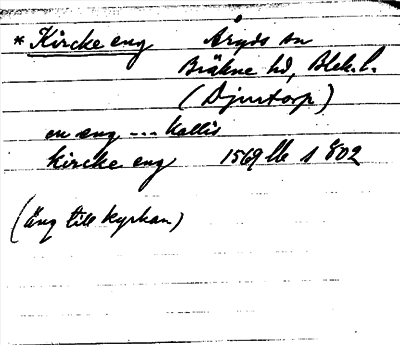 * Kircke eng Åryds sn
Bräkne hd, Blek. l.
(Djurtorp)
en æng --- kallis
kircke eng 1569 lb s 802
(Äng till kyrkan)